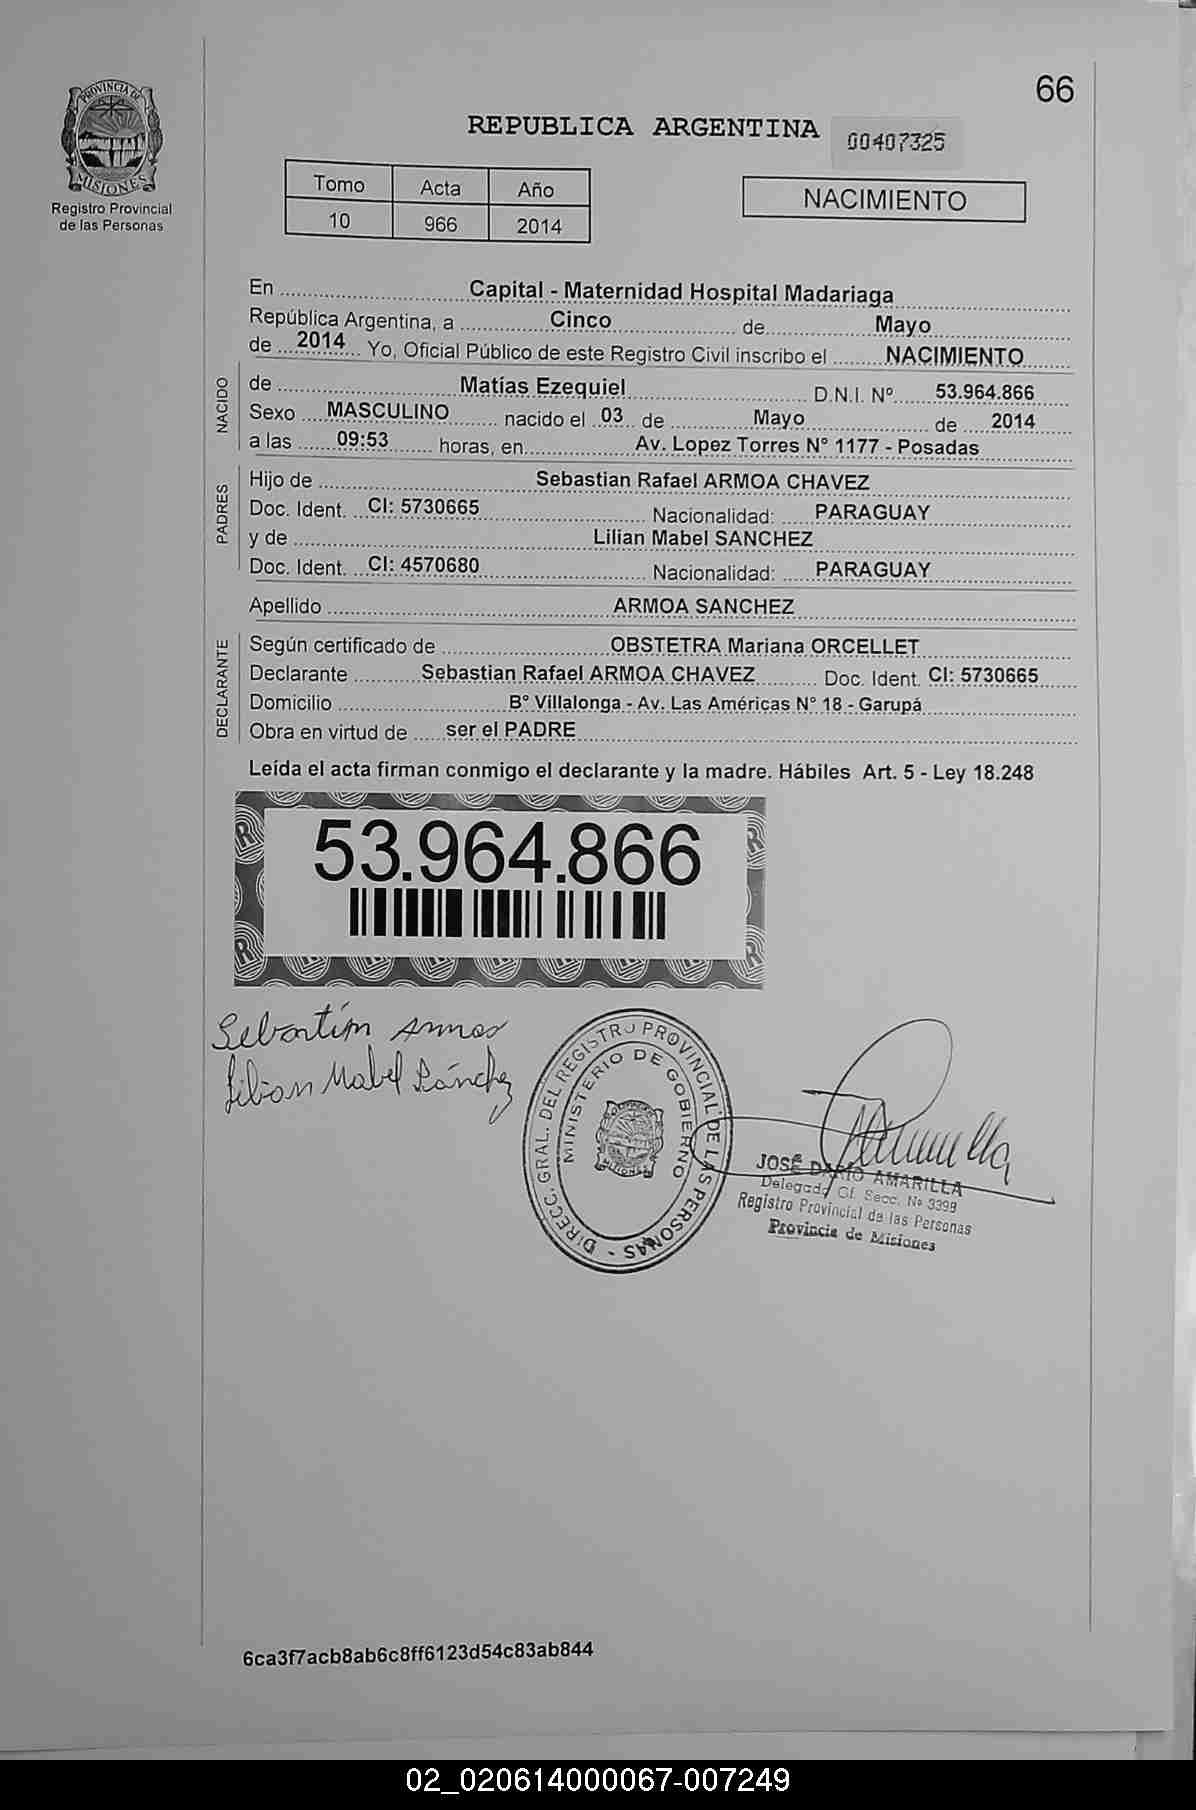 66
PROVINCIA DE
MISIONES
Registro Provincial
de las Personas
REPUBLICA ARGENTINA
00407325
Tomo Acta Año
10 966 2014
NACIMIENTO
En Capital - Maternidad Hospital Madariaga
República Argentina, a Cinco de Mayo
de 2014 Yo, Oficial Público de este Registro Civil inscribo el NACIMIENTO
NACIDO
de Matías Ezequiel D.N.I. Nº 53.964.866
Sexo MASCULINO nacido el 03 de Mayo de 2014
a las 09:53 horas, en Av. Lopez Torres N° 1177 - Posadas
PADRES
Hijo de Sebastian Rafael ARMOA CHAVEZ
Doc. Ident. CI: 5730665 Nacionalidad: PARAGUAY
y de Lilian Mabel SANCHEZ
Doc. Ident. CI: 4570680 Nacionalidad: PARAGUAY
Apellido ARMOA SANCHEZ
DECLARANTE
Según certificado de OBSTETRA Mariana ORCELLET
Declarante Sebastian Rafael ARMOA CHAVEZ Doc. Ident. CI: 5730665
Domicilio B° Villalonga - Av. Las Américas N° 18 - Garupá
Obra en virtud de ser el PADRE
Leída el acta firman conmigo el declarante y la madre. Hábiles Art. 5 - Ley 18.248
53.964.866
Sebastián Armoa
Lilian Mabel Sánchez
DIRECC. GRAL. DEL REGISTRO PROVINCIAL DE LAS PERSONAS -
MINISTERIO DE GOBIERNO
MISIONES
JOSÉ DARÍO AMARILLA
Delegado Of. Secc. Nº 3398
Registro Provincial de las Personas
Provincia de Misiones
6ca3f7acb8ab6c8ff6123d54c83ab844
02_020614000067-007249